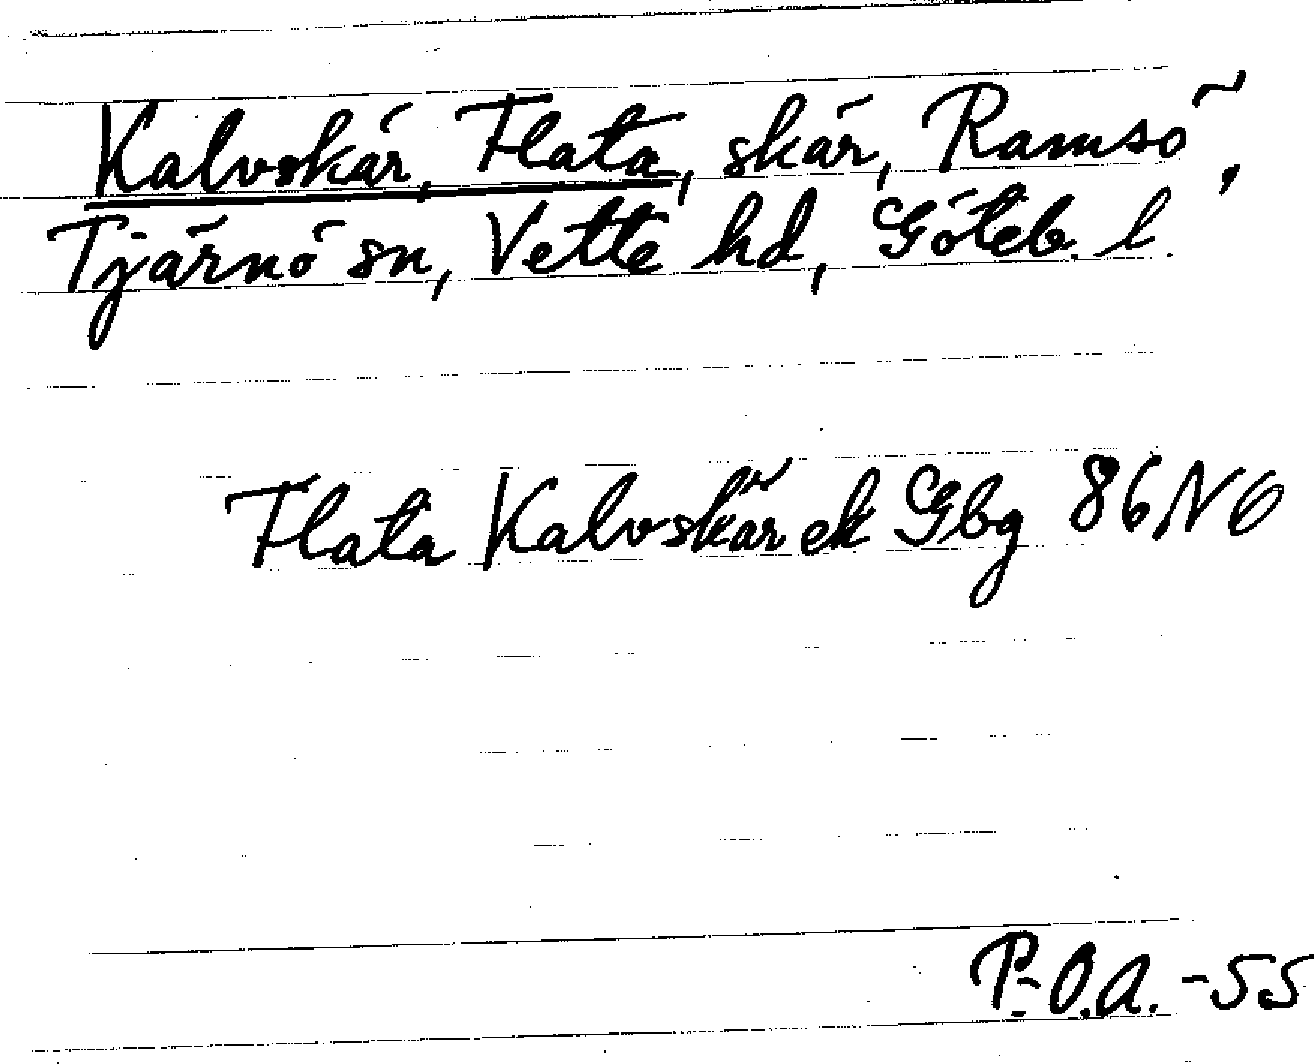 Kalvskär, Flata, skär, Ramsö,
Tjärnö sn, Vette hd, Göteb. l.
Flata Kalvskär ek Gbg 86 NG
P.-O.A. -55